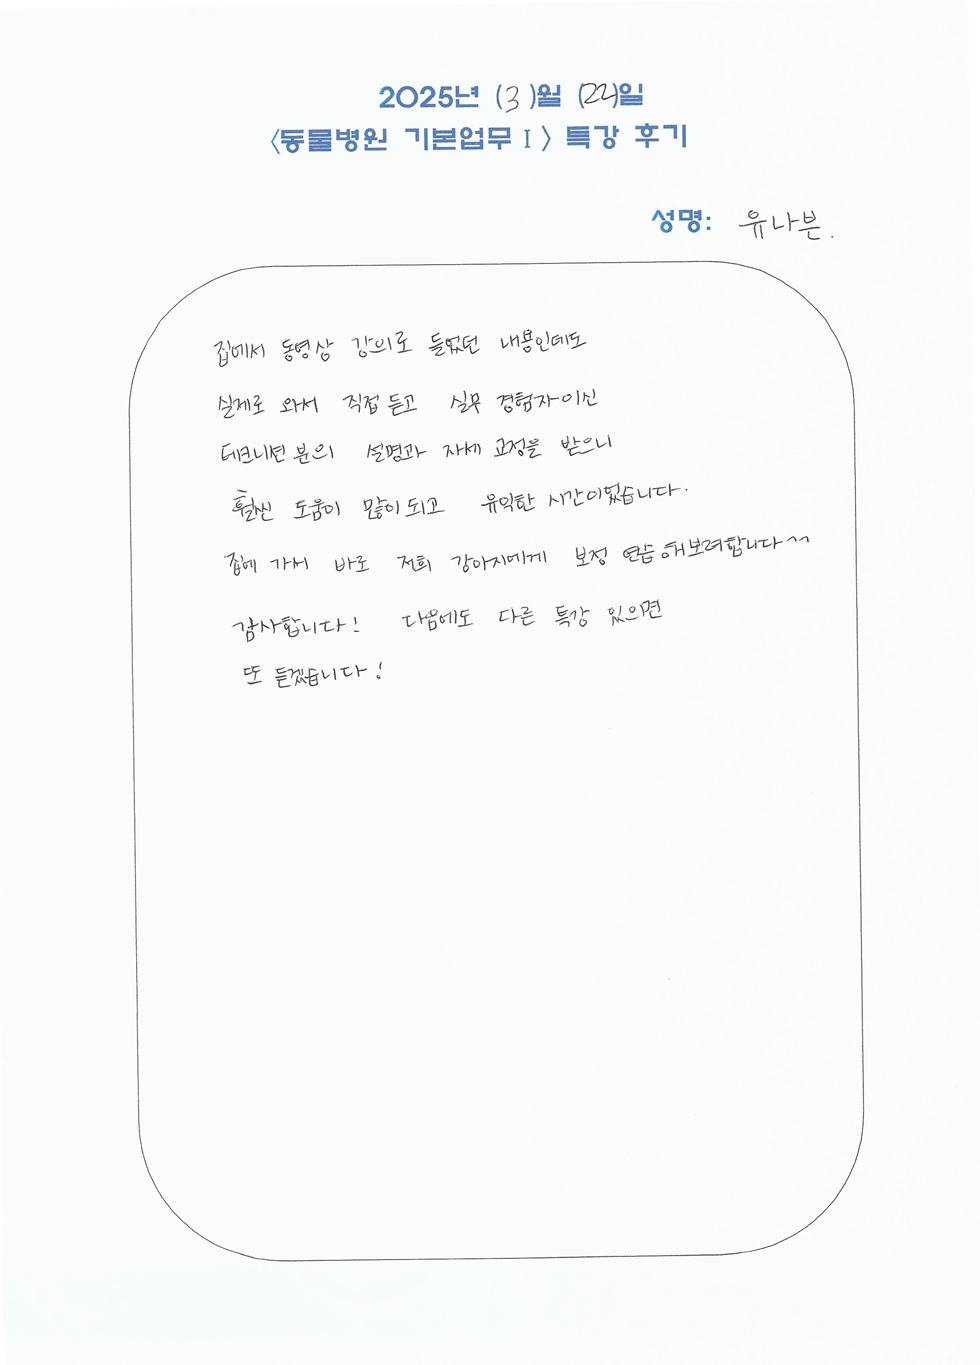 2025년 (3)월 (22)일
<동물병원 기본업무 I> 특강 후기
성명: 유나븐.
집에서 동영상 강의로 들었던 내용인데도
실제로 와서 직접 듣고 실무 경험자이신
테크니션 분의 설명과 자세 교정을 받으니
훨씬 도움이 많이 되고 유익한 시간이었습니다.
집에 가서 바로 저희 강아지에게 보정 연습 해보려합니다^^
감사합니다! 다음에도 다른 특강 있으면
또 듣겠습니다!